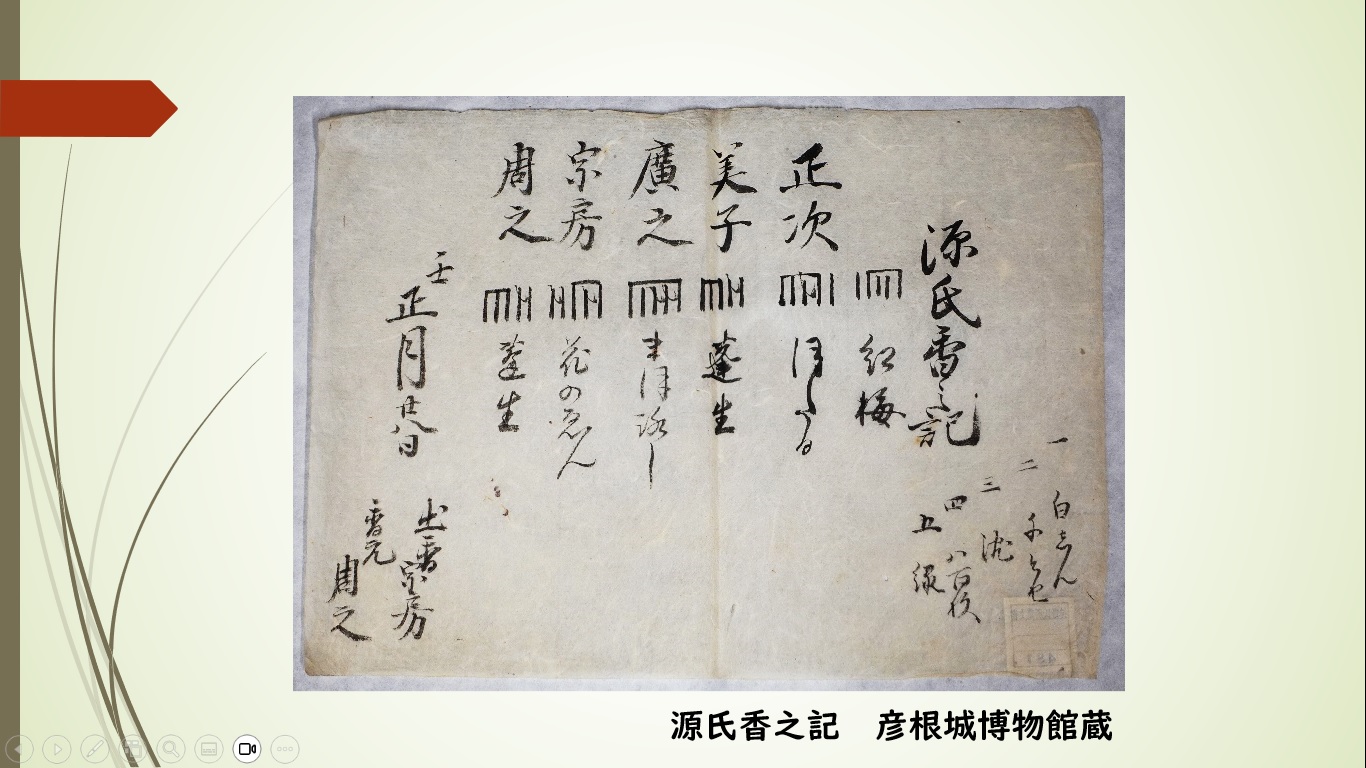 源氏香之記
一
二
三
四
五
白きん
千とせ
沈
八百枚
緑
紅梅
正次
ほたる
美子
蓬生
廣之
宗房
花のゑん
周之
蓬生
壬
正月廿八日
出香
宗房
香元
周之
源氏香之記　彦根城博物館蔵